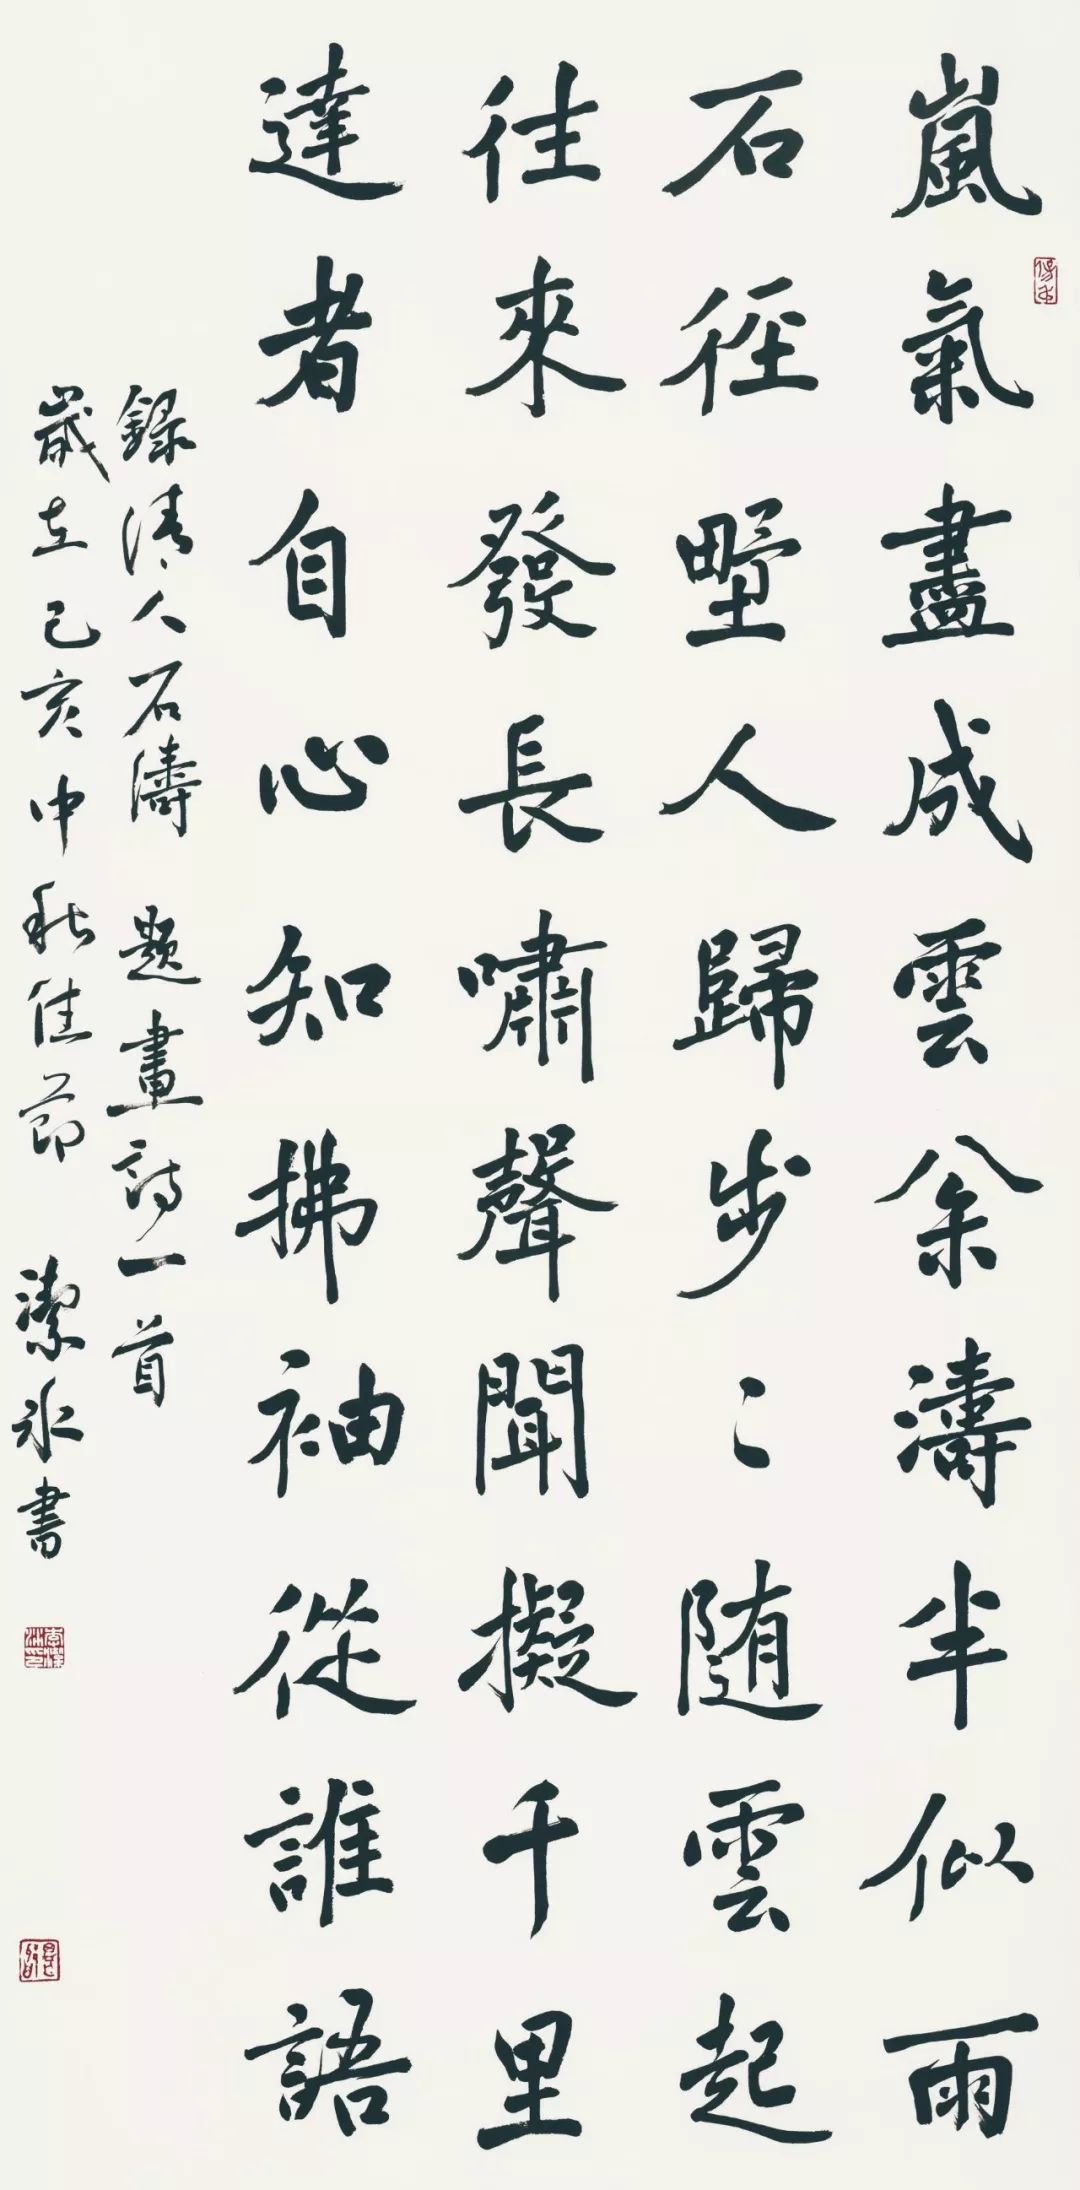 嵐氣盡成雲泉濤半似雨
石径野人歸步〻随雲起
往來發長嘯聲聞擬千里
達者自心知拂袖從誰語
録清人石濤題畫詩一首
歲在己亥中秋佳節潔冰書